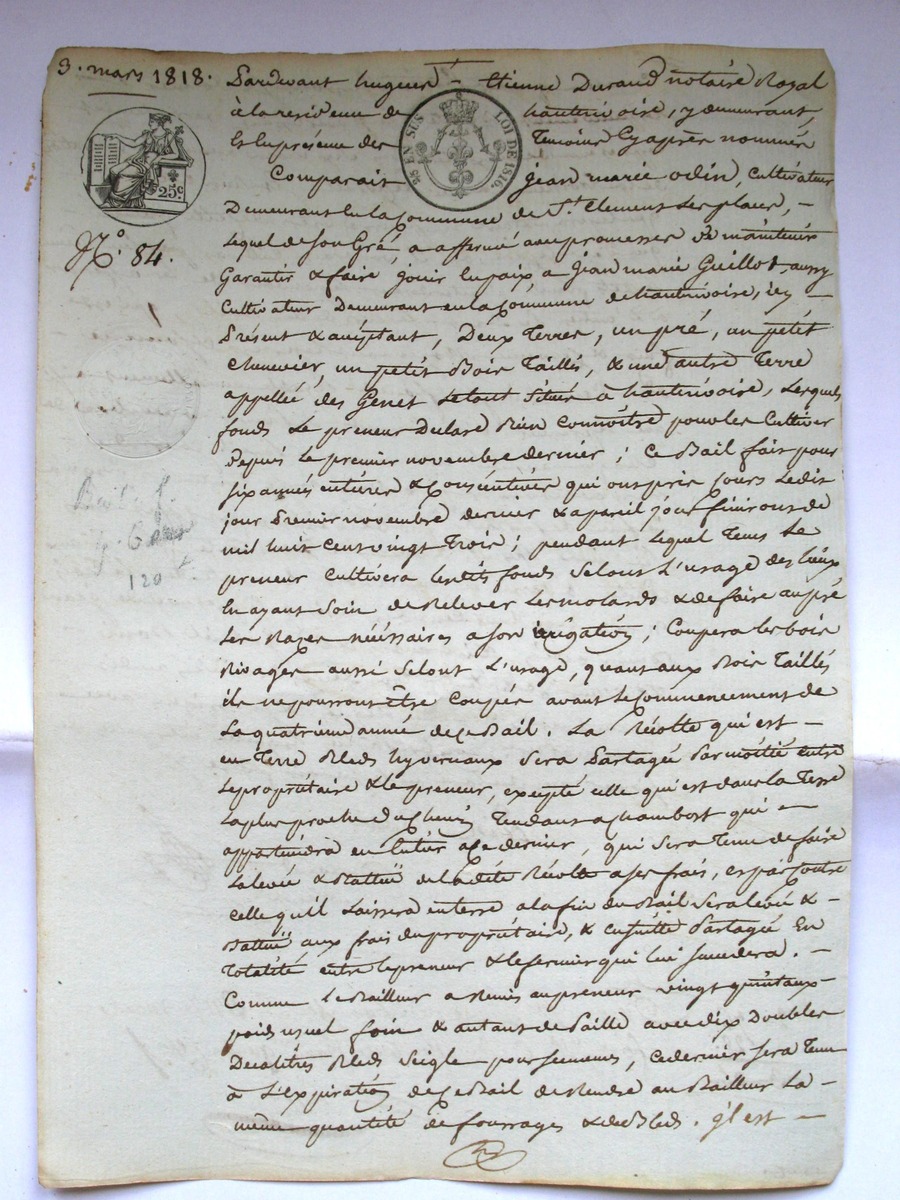 3. mars 1818.
Pardevant hugues - Etienne Durand notaire Royal
à la residence de hautrivoire, y demeurant,
En la présence des Temoins Cyaprès nommés
EN SUS LOI DE 1816.
25 c
Comparait Jean marie odin, Cultivateur
Demeurant En la Commune de St. Clement Les places, -
Lequel de Son Gré, a affermé avec promesses de maintenir
N.o 84.
Garantir & faire jouir En paix a Jean marie Guillot, aussy
Cultivateur Demeurant en la Commune de hautrivoire, icy -
Présent & acceptant, Deux Terres, un pré, un petit
chenevier, un petit Bois Taillés, & une autre Terre
appellée des Genet Le tout Situé à hautrivoire, Lesquels
fonds Le preneur Declare Bien Connoitre pour les Cultiver
Depuis Le premier novembre dernier ; Ce Bail fait pour
Six années entières & Consecutives qui ont pris Cours Ledit
jour Premier novembre dernier & a pareil jour finiront de
mil huit Cent vingt Trois ; pendant Lequel Tems Le
preneur Cultivera Lesdits fonds Selont L'usage des Lieux
En ayant Soin de Relever Les molards & de faire au pré
Les Rases nécéssaires a son irrigation ; Coupera les bois
Rivages aussi Selont L'usage, quant aux Bois Taillés
ils ne pourront être Coupés avant Le Commencement de
La quatrieme année de Ce Bail. La Récolte qui est -
en Terre Bleds hyvernaux Sera Partagée Par moitié entre
Le propriétaire & Le preneur, excepté celle qui est dans La Terre
La plus proche du Chemin Tendant a Chambost qui -
appartiendra en Entier a Ce dernier, qui Sera Tenu de faire
La levée & Battue de La dite Récolte a ses frais, et par Contre
Celle qu'il Laissera en terre a la fin du Bail Sera levée & -
Battue aux frais du propriétaire, & ensuitte Partagée En
Totalité entre Le preneur & le fermier qui lui Succedera. -
Comme Le Bailleur a Remis au preneur vingt quintaux
poids usuel foin & autant de Paille avec dix Doubles
Decalitres Bleds Seigle pour Semences, Ce dernier Sera Tenu
à L'Expiration de Ce Bail de Rendre au Bailleur La -
même quantité de fourrages & de Bleds. il est -
Bail
120